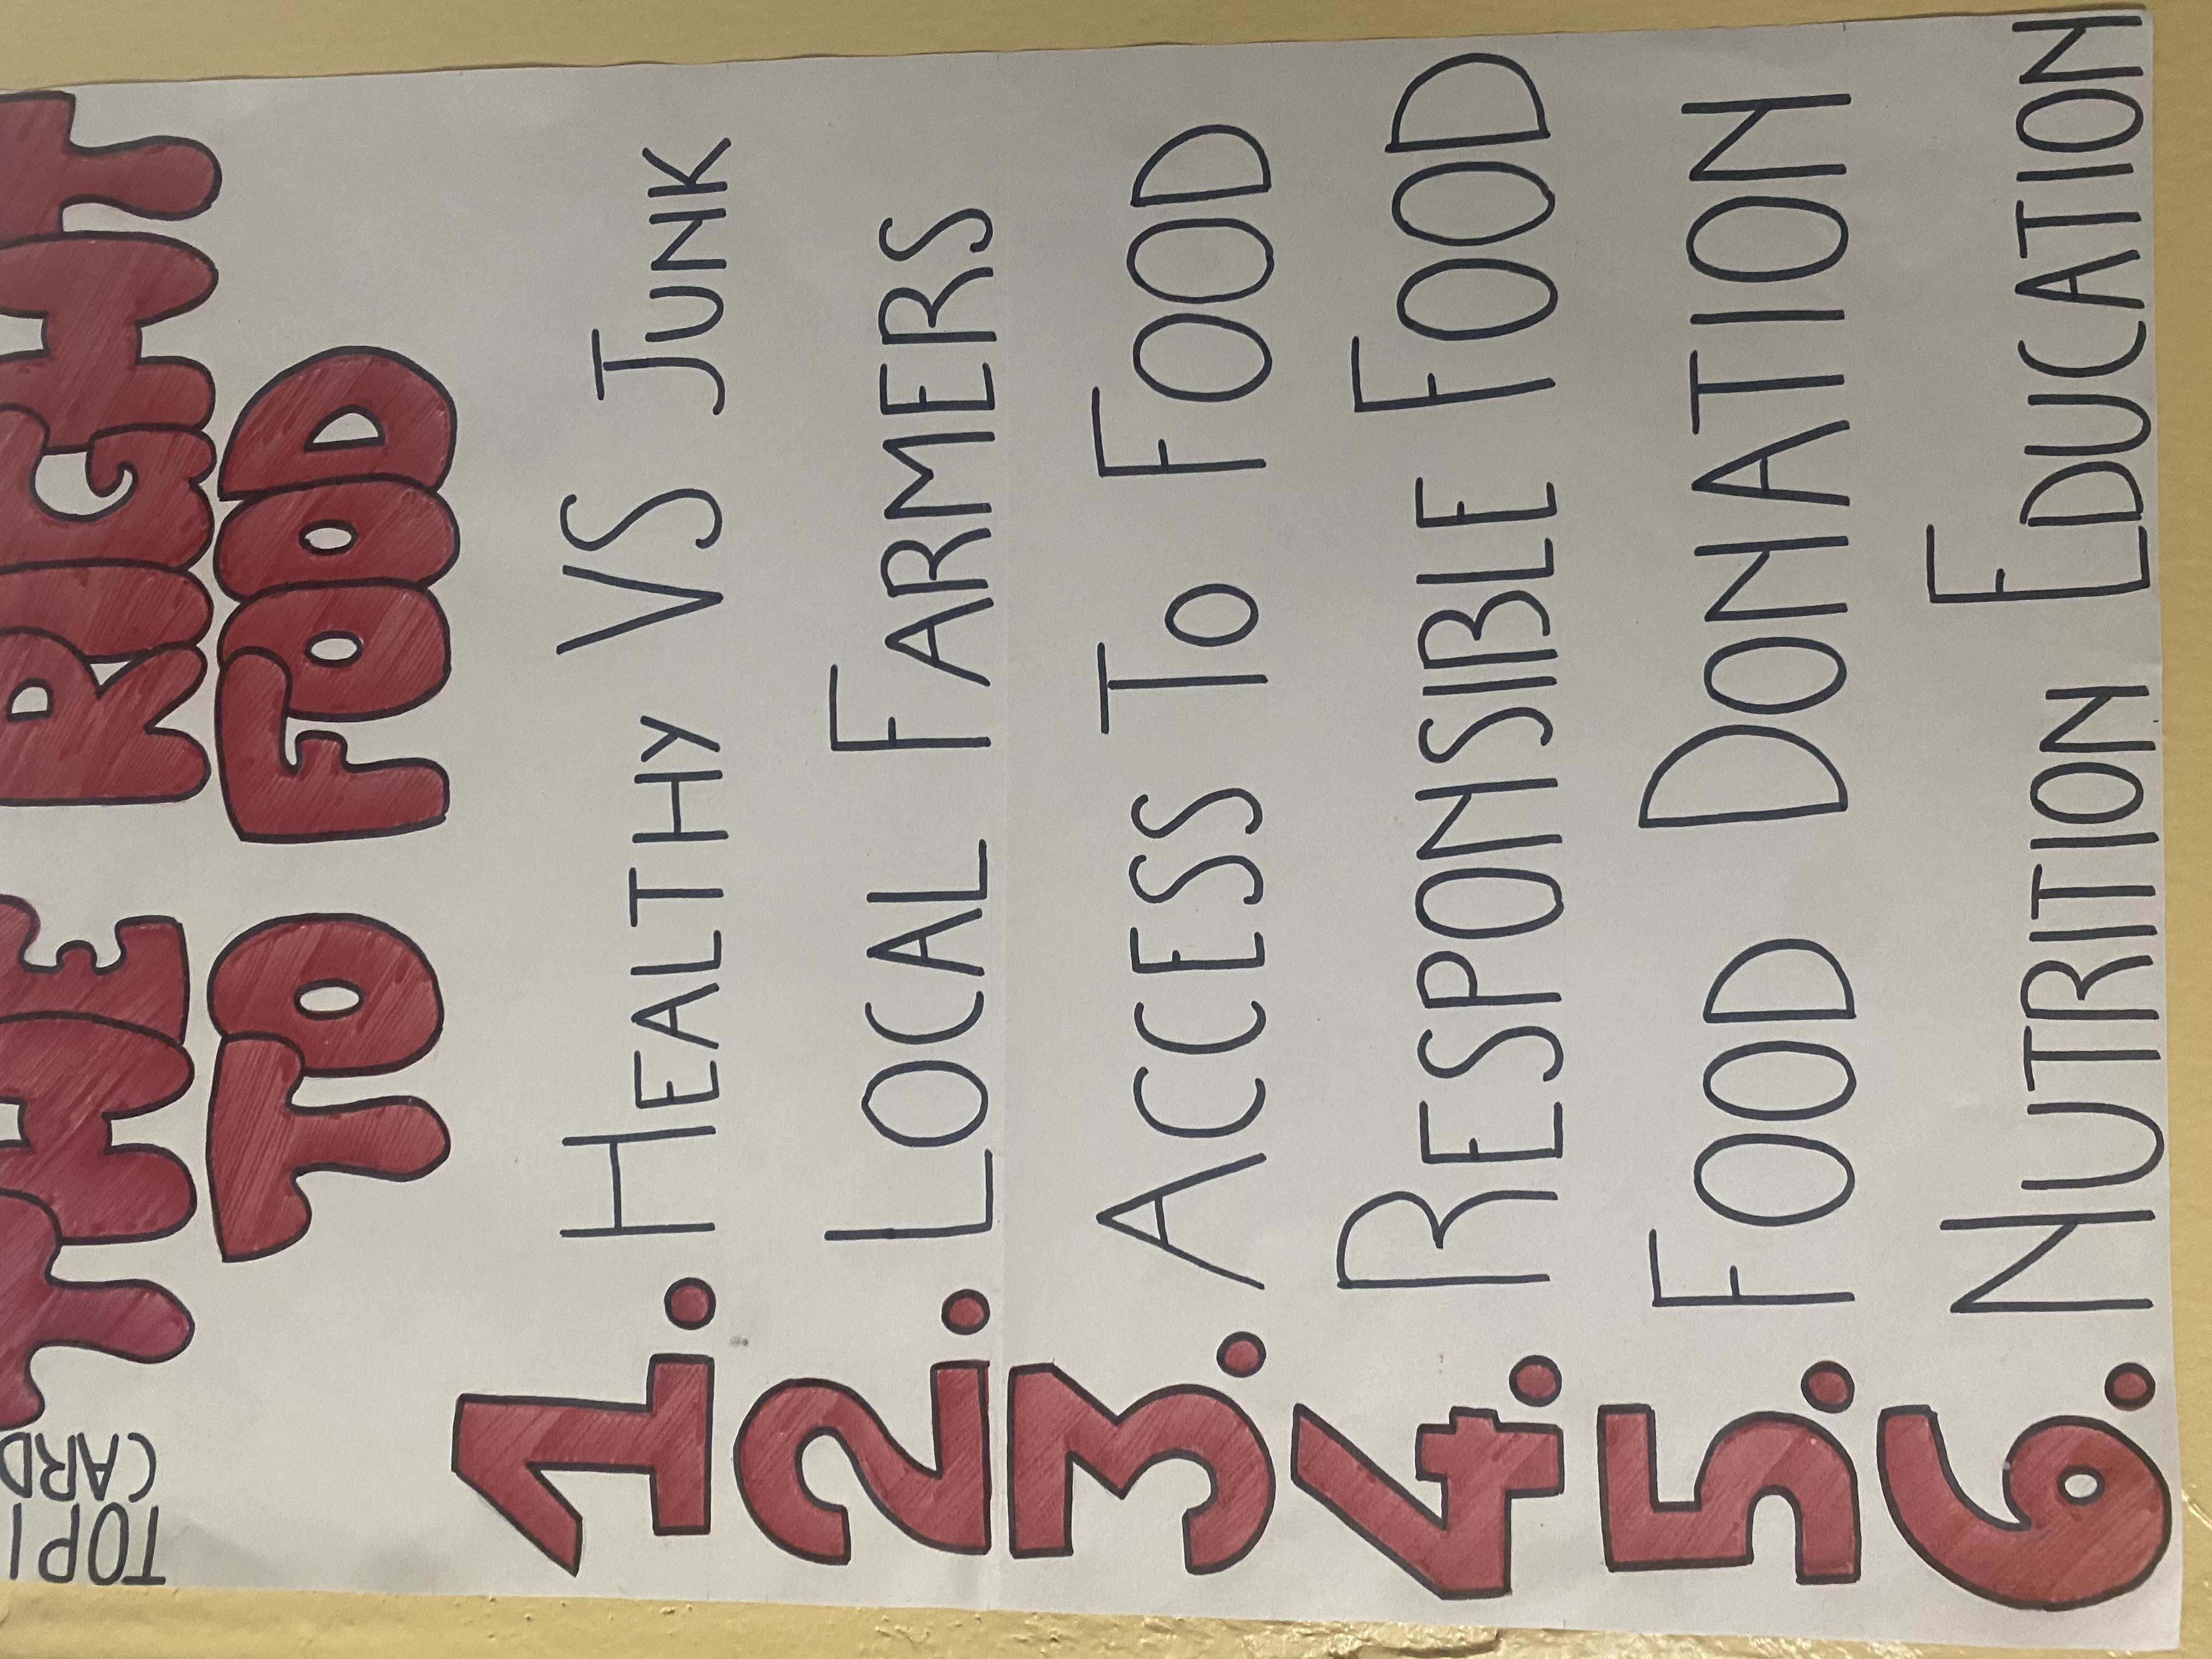 THE RIGHT
TO FOOD
1. HEALTHY VS JUNK
2. LOCAL FARMERS
3. ACCESS TO FOOD
4. RESPONSIBLE FOOD
5. FOOD DONATION
6. NUTRITION EDUCATION
TOPI
CARD